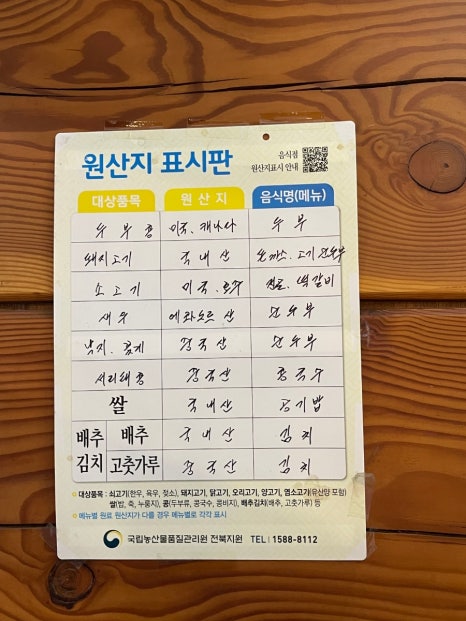 원산지 표시판
음식점
원산지표시 안내
대상품목 원산지 음식명(메뉴)
두부콩 미국. 캐나다 두부
돼지고기 국내산 돈까스. 고기순두부
소고기 미국. 호주 전골. 떡갈비
새우 에콰도르산 순두부
낙지. 꽃게 중국산 순두부
서리태콩 중국산 콩국수
쌀 국내산 공기밥
배추김치 배추 국내산 김치
고춧가루 중국산 김치
대상품목 : 쇠고기(한우, 육우, 젖소), 돼지고기, 닭고기, 오리고기, 양고기, 염소고기(유산양 포함)
쌀(밥, 죽, 누룽지), 콩(두부류, 콩국수, 콩비지), 배추김치(배추, 고춧가루) 등
메뉴별 원료 원산지가 다를 경우 메뉴별로 각각 표시
국립농산물품질관리원 전북지원 TEL 1588-8112